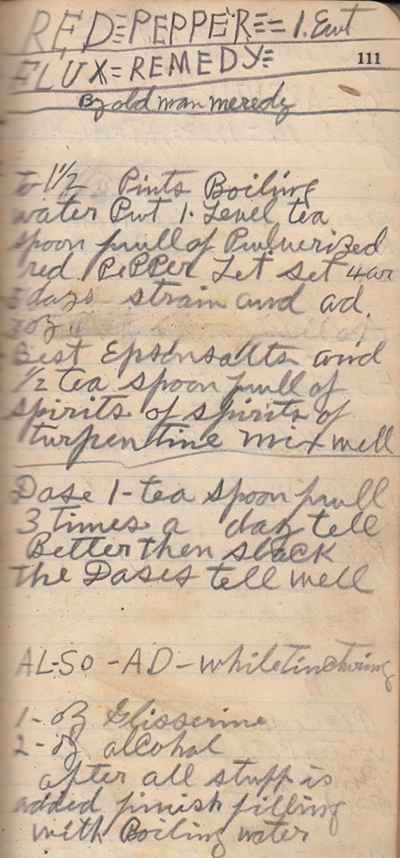 RED=PEPPER== 1. Ewt
FLUX=REMEDY=
111
By old man meredy
to 1½ Pints Boiling
water Put 1. Level tea
spoon full of Pulverized
red. PePPer Let set 4 or
5 days strain and ad.
3 oz
Best Epsonsalts and
½ tea spoon full of
spirits of spirits of
turpentine mix well
Dose 1-tea spoon full
3 times a day tell
Better then slack
the Dases tell well
AL-SO-AD-while tincturing
1-oz Glisserine
2-oz alcohal
after all stuff is
added finish filling
with Boiling water